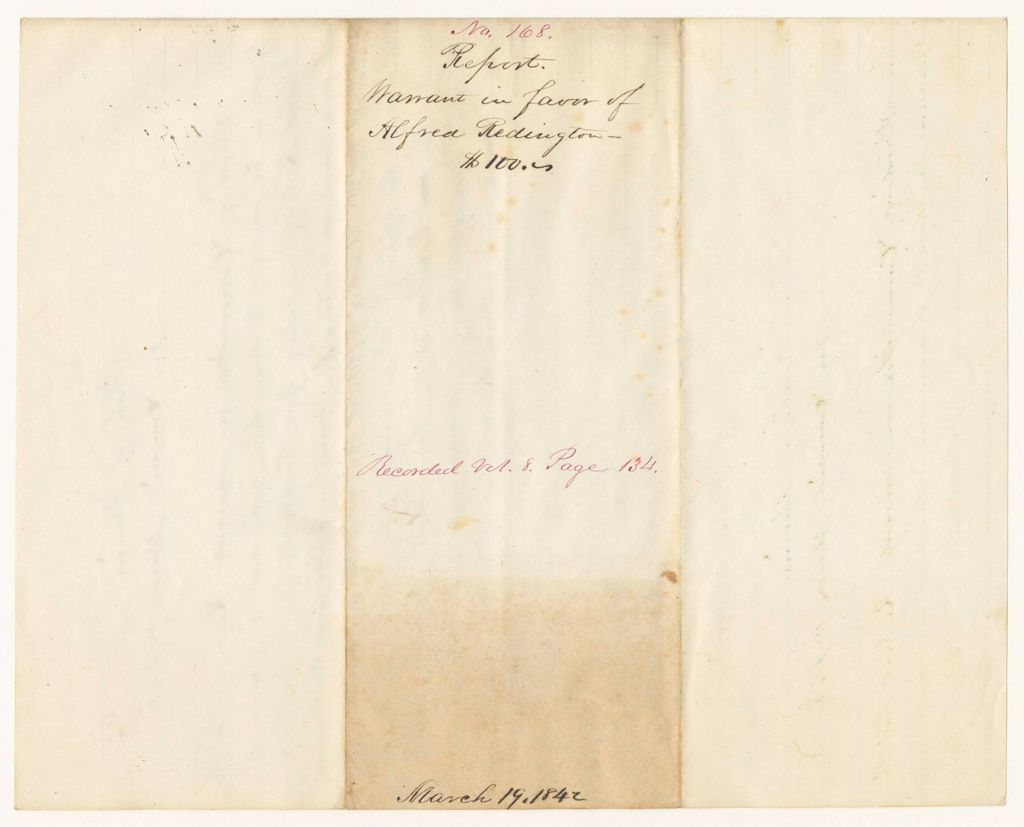 No. 168.
Report.
Warrant in favor of
Alfred Redington –
$100.
Recorded Vol. 8. Page 134.
March 19. 1842